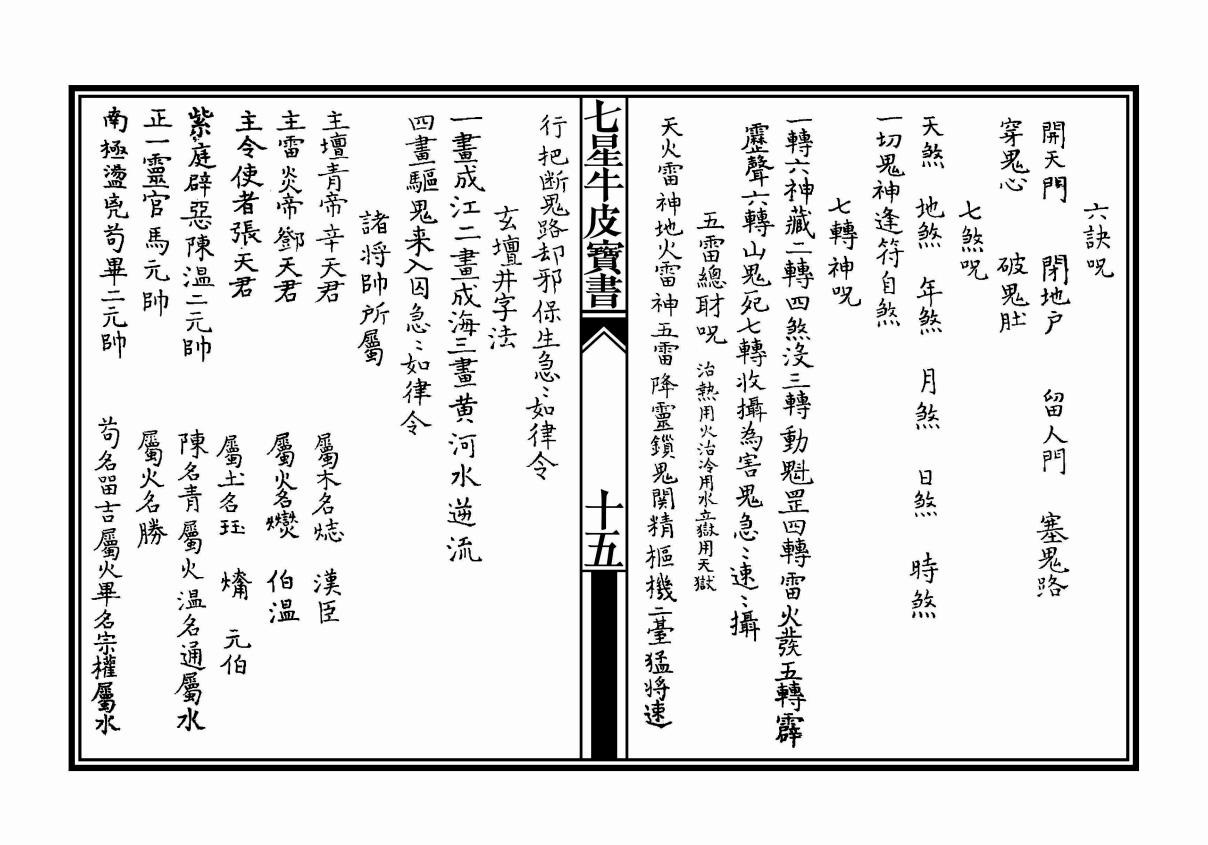 六訣咒
開天門 閉地户 留人門 塞鬼路
穿鬼心 破鬼肚
七煞咒
天煞 地煞 年煞 月煞 日煞 時煞
一切鬼神逢符自煞
七轉神咒
一轉六神藏二轉四煞没三轉動魁罡四轉雷火發五轉霹
靂聲六轉山鬼死七轉收攝為害鬼急〻速〻攝
五雷總財咒 治熱用火治冷用水立獄用天獄
天火雷神地火雷神五雷降靈鎖鬼関精樞機二臺猛将速
七星牛皮寶書
十五
行把断鬼路却邪保生急〻如律令
玄壇井字法
一畫成江二畫成海三畫黄河水逆流
四畫驅鬼来入囚急〻如律令
諸将帥所屬
主壇青帝辛天君 屬木名 漢臣
主雷炎帝鄧天君 屬火名燮 伯溫
主令使者張天君 屬土名珏 元伯
紫庭辟惡陳溫二元帥 陳名青屬火溫名通屬水
正一靈官馬元帥 屬火名勝
南極盪兇苟畢二元帥 苟名留吉屬火畢名宗權屬水